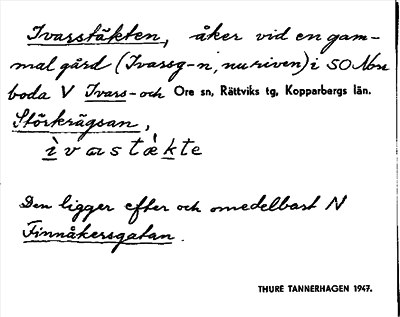 Ivarstäkten, åker vid en gam-
mal gård (Ivarsg-n, nu riven) i SO Norr
boda V Ivars- och Ore sn, Rättviks tg, Kopparbergs län.
Störkrägsan,
ìvastǽkte
Den ligger efter och omedelbart N
Finnåkersgatan.
THURE TANNERHAGEN 1947.